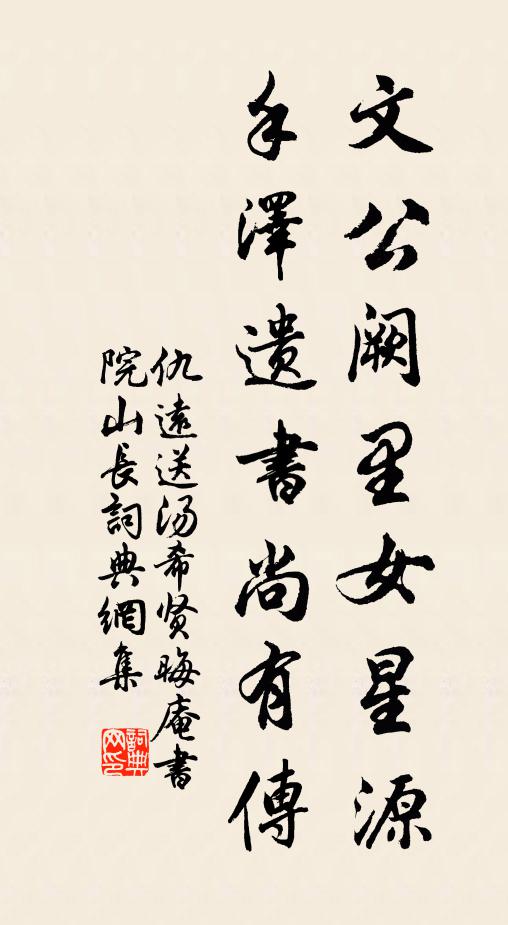 文公阙里女星源
手澤遺書尚有傳
仇遠送汤希贤晦庵書
院山長詞典網集
詞典網印